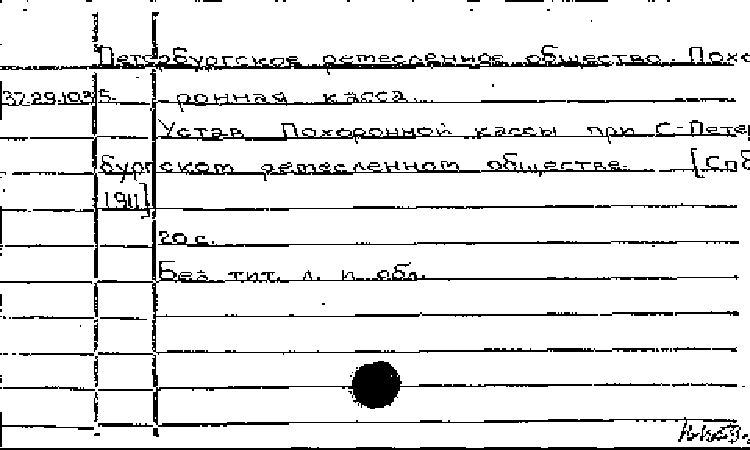 Петербургское ремесленное общество. Похо
37.29.103 5. -ронная касса.
Устав Похоронной кассы при С-Петер
бургском ремесленном обществе. [Спб
1911]
20 с.
Без тит. л. и обл.